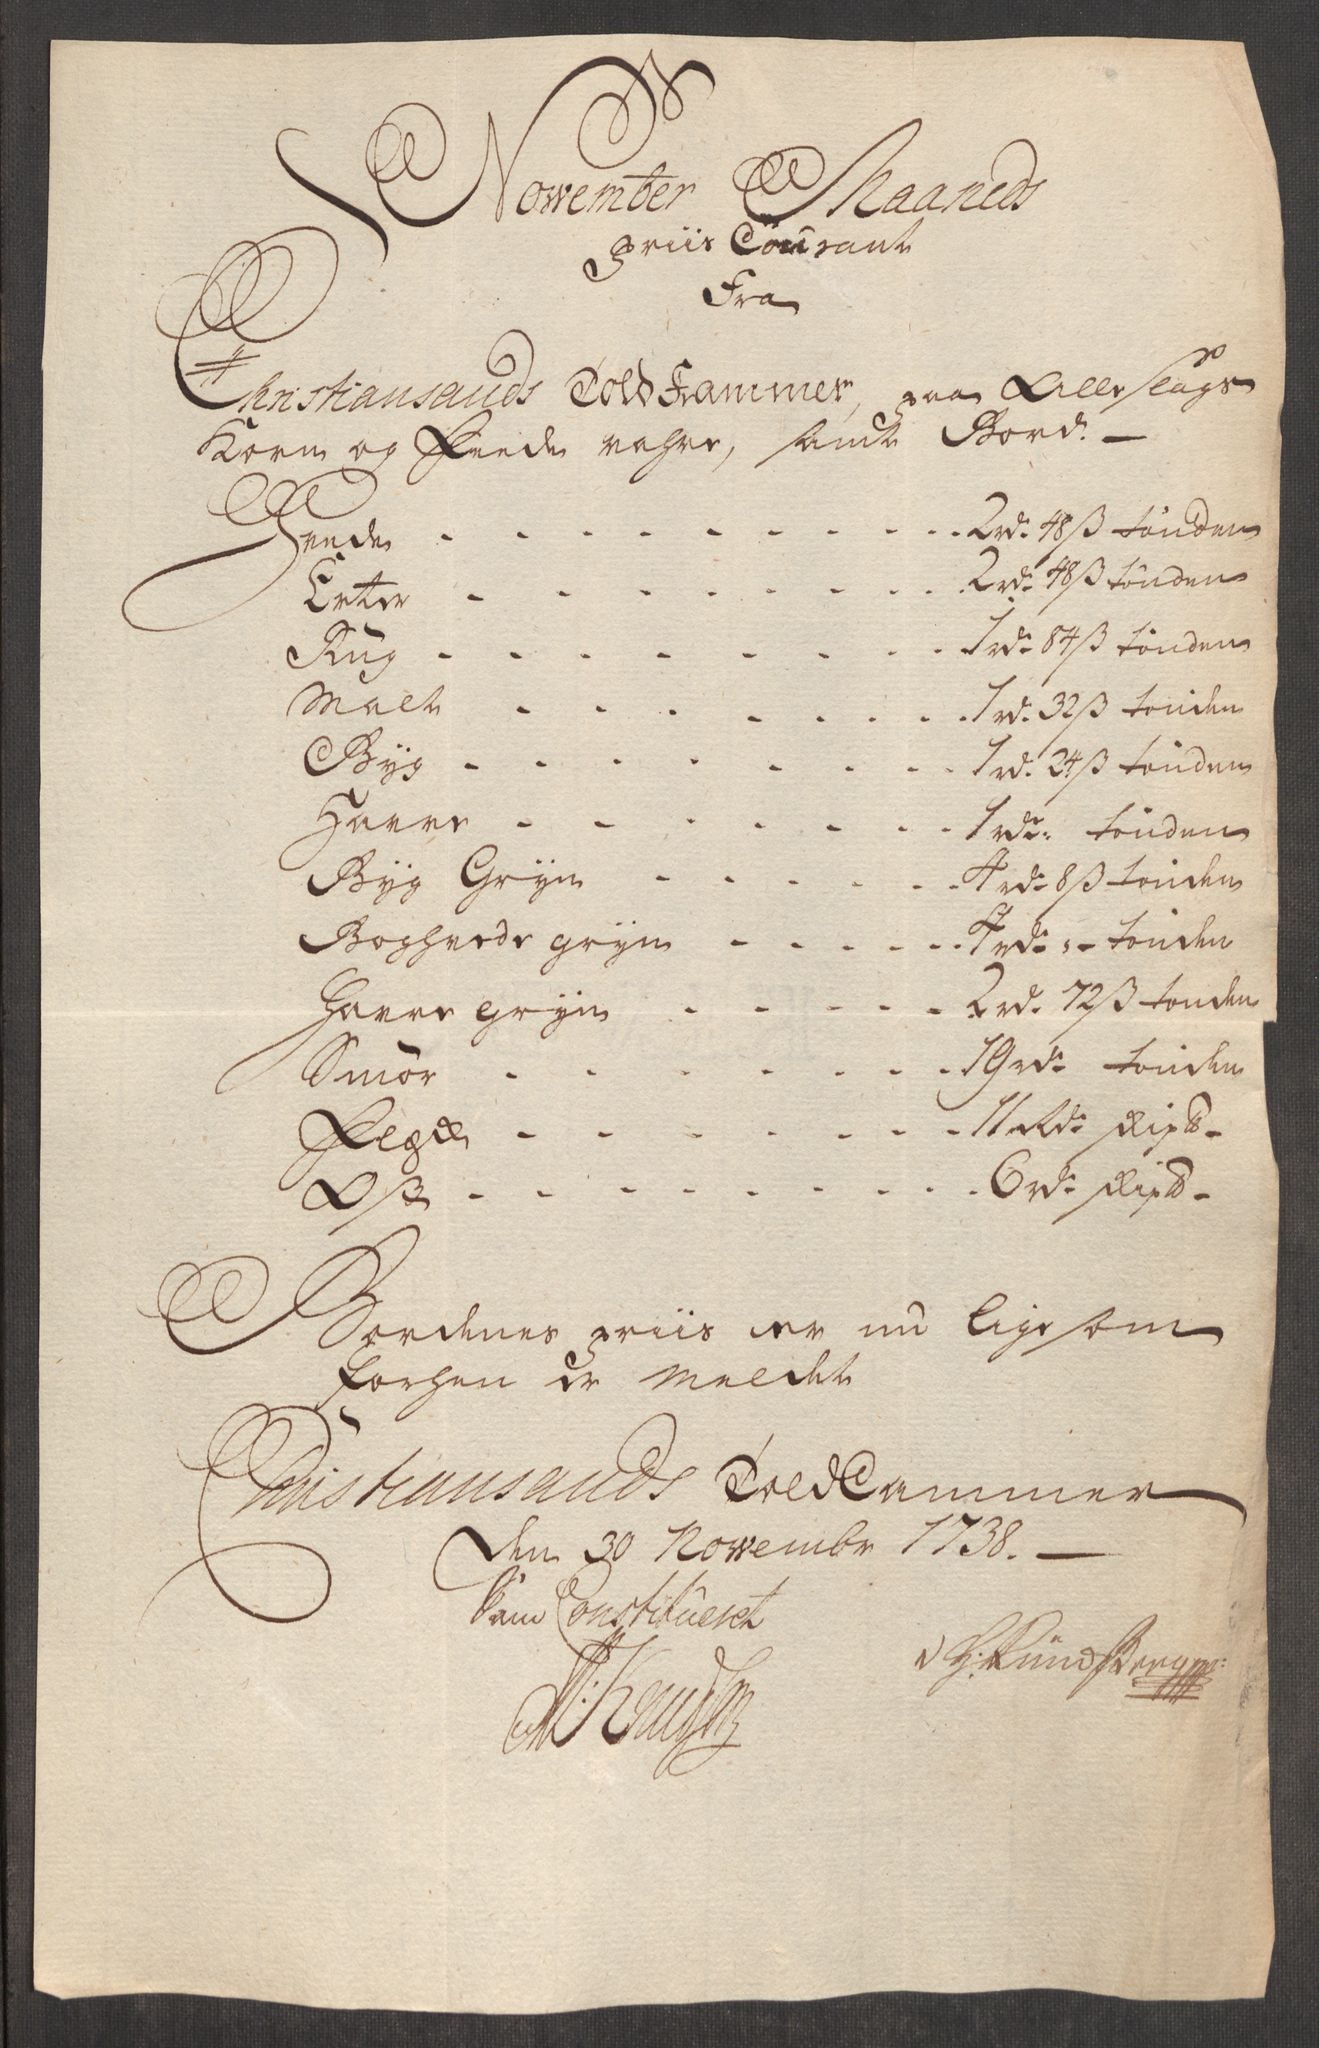 November Maaneds
Priis Courant
Fra
Christiansands Told Kammer, paa Alle slags
Korn og Feede vahre, samt Bord. —
Hvede - - - - - - - - 2 rd. 48 ß tönden
Erter - - - - - - - - 2 rd. 48 ß tönden
Rug - - - - - - - - 1 rd. 84 ß tönden
Malt - - - - - - - 1 rd. 32 ß tönden
Byg - - - - - - - - 1 rd. 24 ß tönden
Havre - - - - - - - 1 rdr. tönden
Byg Gryn - - - - - 4 rd. 8 ß tönden
Boghvede gryn - - - - 4 rd. - tönden
Havre gryn - - - - - 2 rd. 72 ß tönden
Smör - - - - - - - 19 rd. tönden
Flesk - - - - - - - 11 Rd.
Ost - - - - - - - - 6 rd.
Bordenes priis er nu lige som
forhen er meldet
Christiansands Told Cammer
den 30 Novembr 1738. —
Som Constitueret
Knudsen